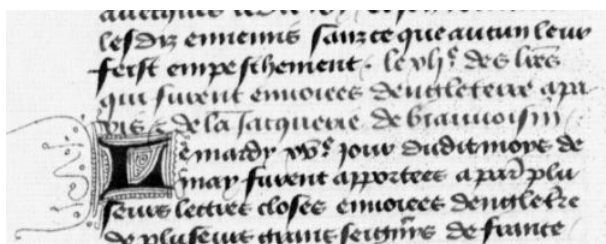 lesdiz ennemis sanz ce que aucun leur
feist empeschement. le
des lres
qui furent envoiees dengleterre a pa
ris & de la Jacquerie de beauvoisin
Le mardy xve jour dudit moys de
may furent apportees a par plu
seurs lectres closes envoiees dengletre
de pluseurs grans seigns de france